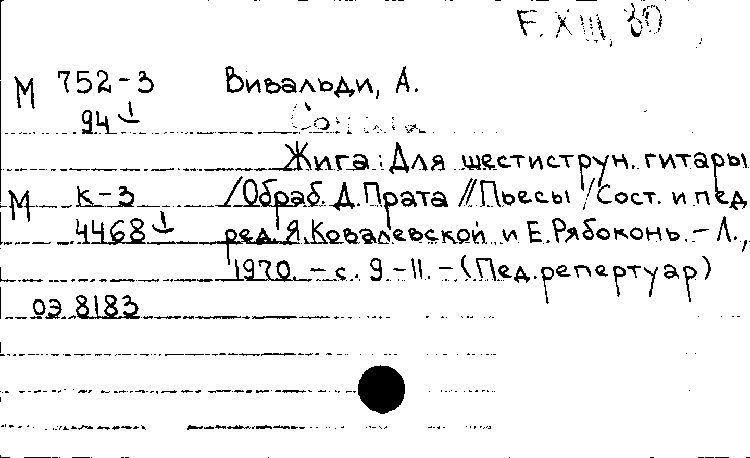 F. XIII, 30
М 752-3 Вивальди, А.
94
Соната
Жига: Для шестиструн. гитары
М К-3 /Обраб. Д. Прата // Пьесы / Сост. и пед.
4468 ред. Я. Ковалевской и Е. Рябоконь. - Л.,
1970. - с. 9-11. - (Пед. репертуар)
ОЭ 8183